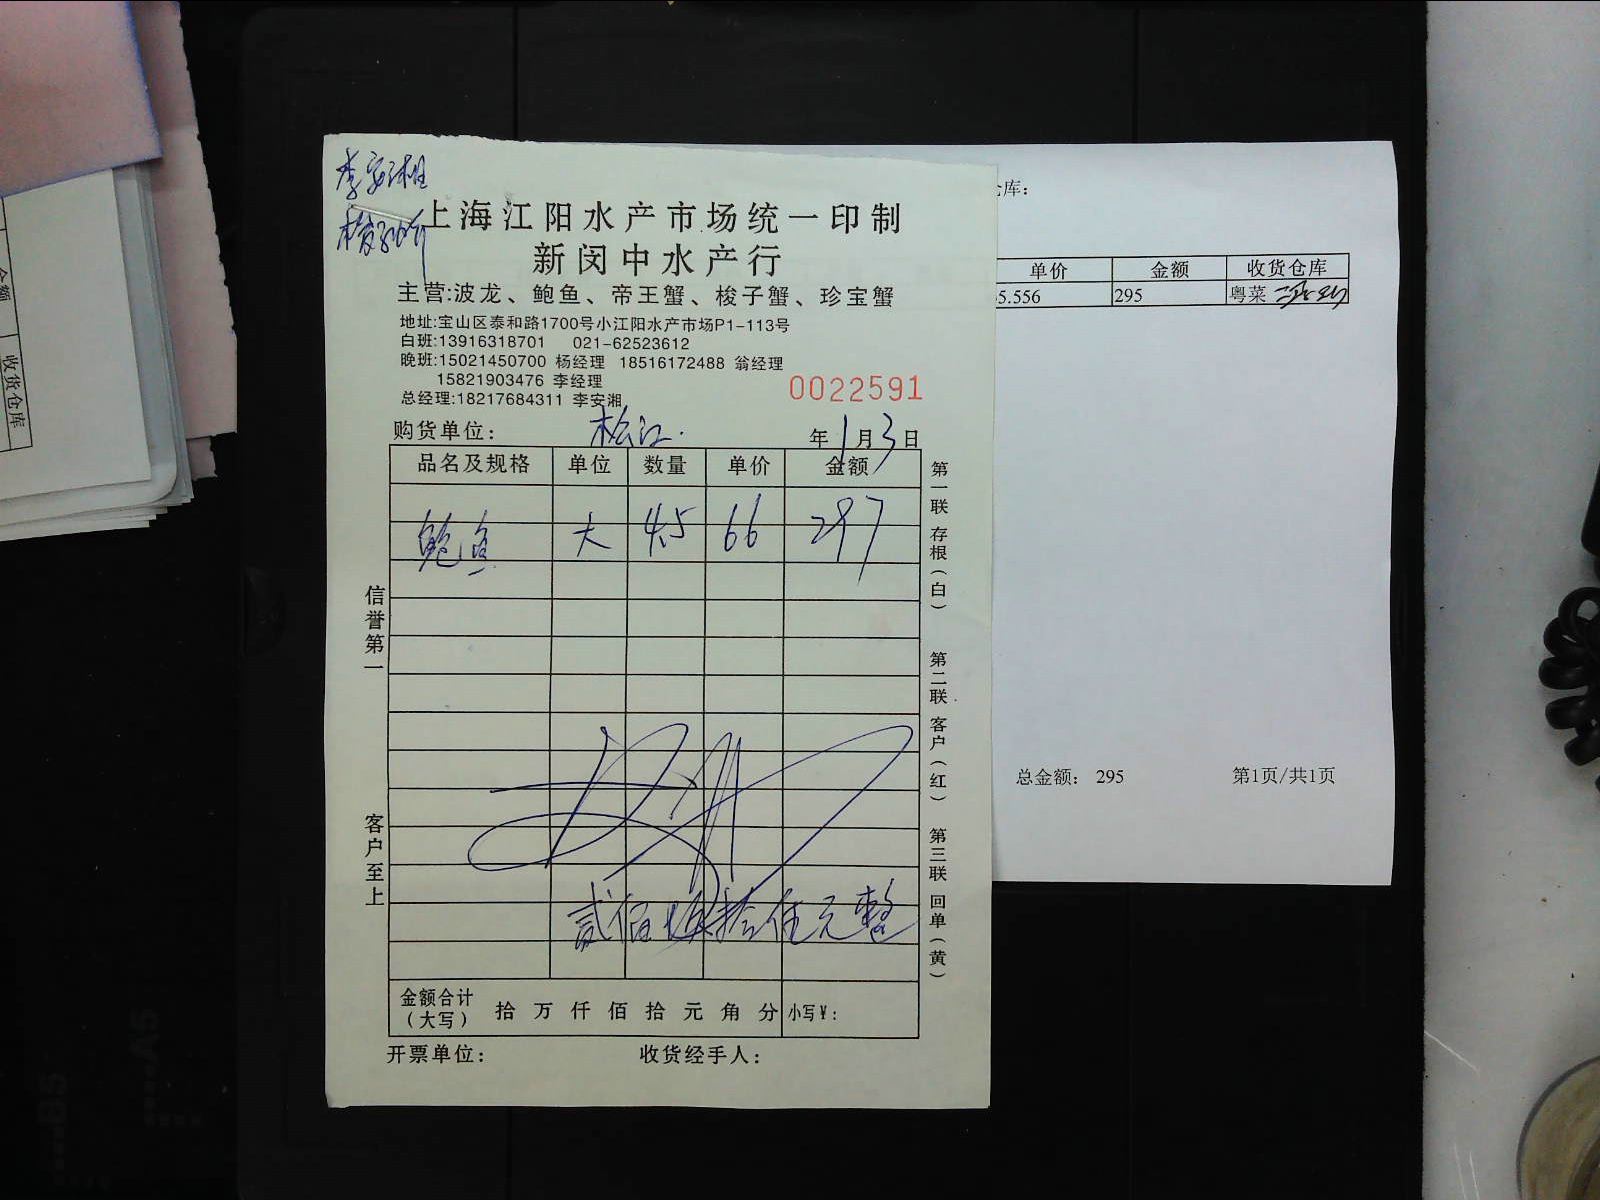 李安湘
上海江阳水产市场统一印制
新闵中水产行
主营:波龙、鲍鱼、帝王蟹、梭子蟹、珍宝蟹
地址:宝山区泰和路1700号小江阳水产市场P1-113号
白班:13916318701 021-62523612
晚班:15021450700 杨经理 18516172488 翁经理
15821903476 李经理
总经理:18217684311 李安湘
0022591
购货单位: 松江. 年1月3日
品名及规格 单位 数量 单价 金额
鲍鱼 大 4.5 66 297
贰佰 拾伍元整
金额合计（大写） 拾 万 仟 佰 拾 元 角 分 小写¥:
开票单位: 收货经手人:
信誉第一 客户至上
第一联 存根(白) 第二联 客户(红) 第三联 回单(黄)
仓库:
单价 金额 收货仓库
5.556 295 粤菜
总金额: 295 第1页/共1页
金额
收货仓库
B5
A5